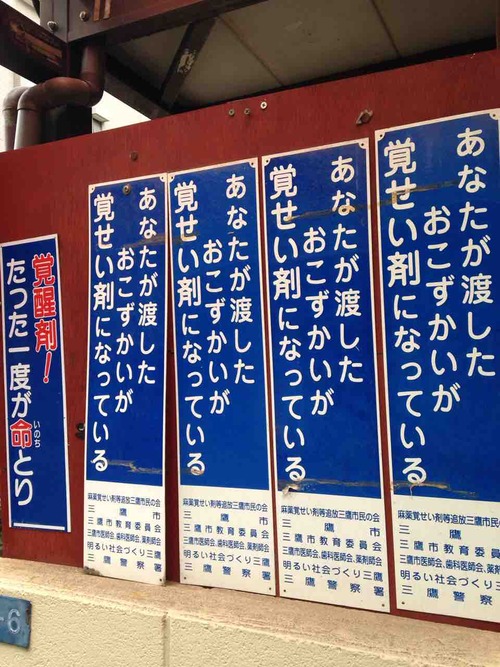 あなたが渡した
おこずかいが
覚せい剤になっている
麻薬覚せい剤等追放三鷹市民の
三鷹市
三鷹市教育委員会
三鷹市医師会、歯科医師会、薬
明るい社会づくり三鷹
三鷹警察署
あなたが渡した
おこずかいが
覚せい剤になっている
麻薬覚せい剤等追放三鷹市民の会
三鷹市
三鷹市教育委員会
三鷹市医師会、歯科医師会、薬剤師会
明るい社会づくり三鷹
三鷹警察署
あなたが渡した
おこずかいが
覚せい剤になっている
麻薬覚せい剤等追放三鷹市民の会
三鷹市
三鷹市教育委員会
三鷹市医師会、歯科医師会、薬剤師会
明るい社会づくり三鷹
三鷹警察署
あなたが渡した
おこずかいが
覚せい剤になっている
麻薬覚せい剤等追放三鷹市民の会
三鷹市
三鷹市教育委員会
三鷹市医師会、歯科医師会、薬剤師会
明るい社会づくり三鷹
三鷹警察署
覚醒剤!
たった一度が命とり
いのち
-6